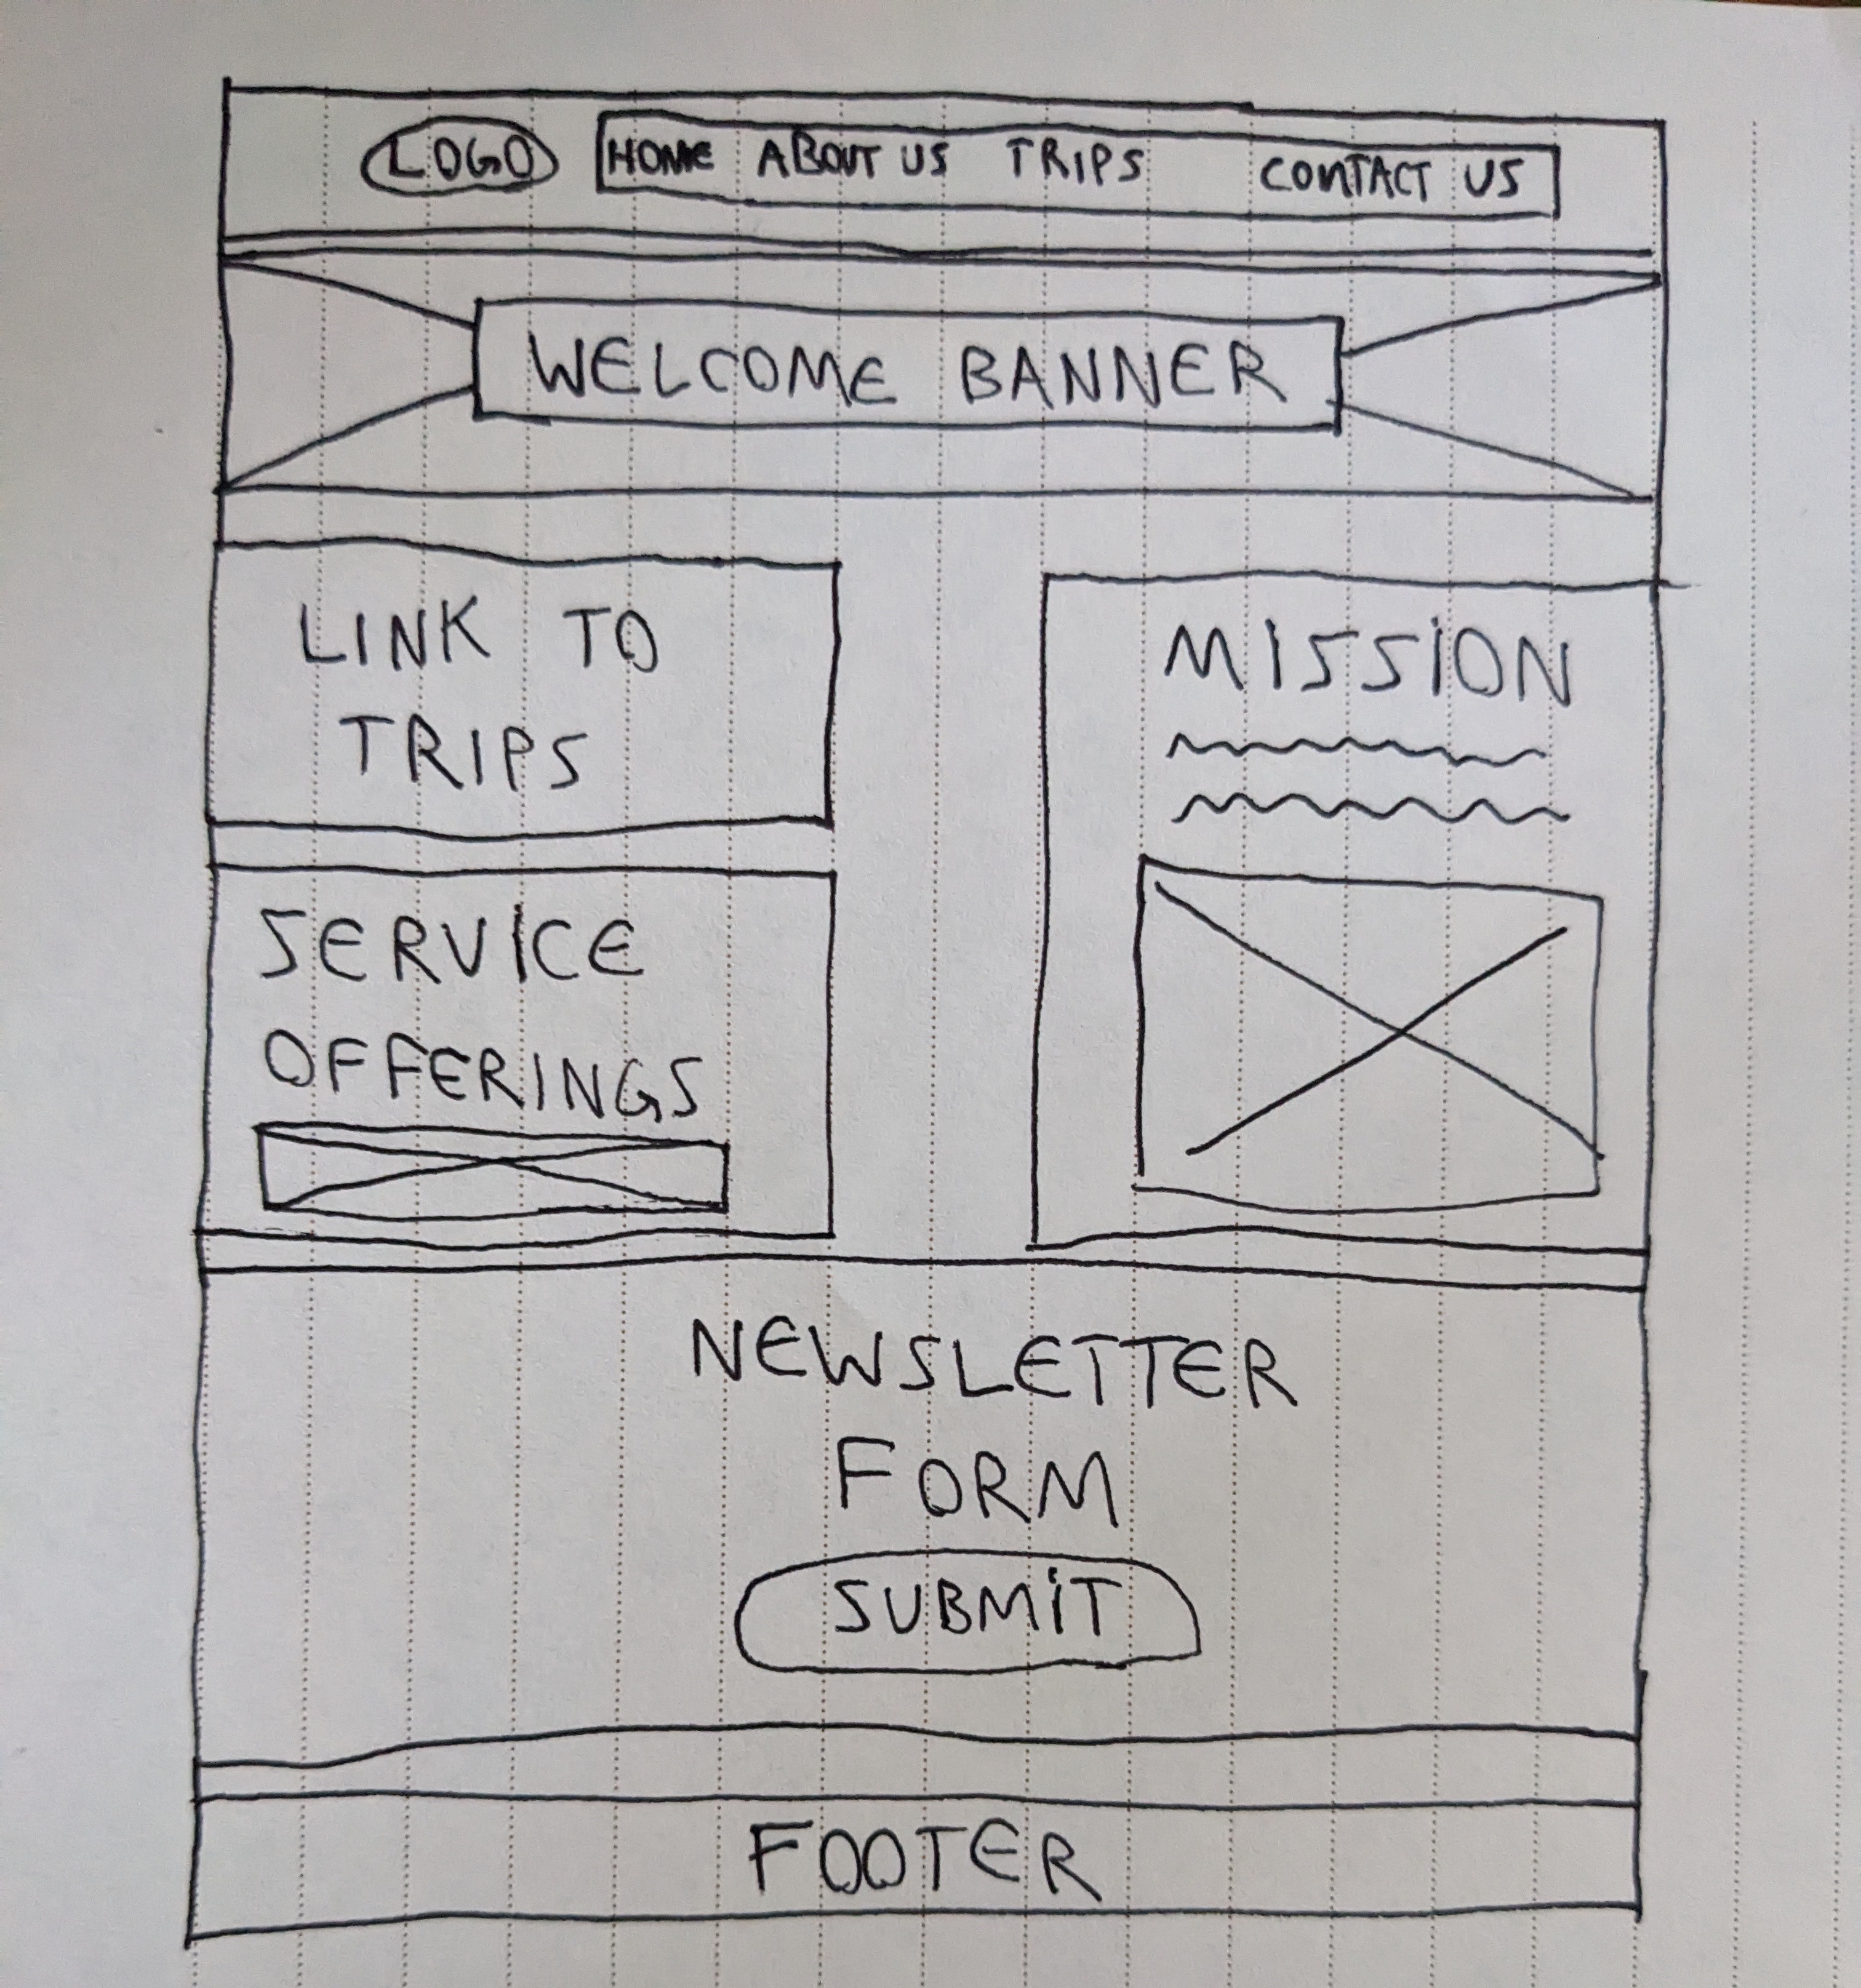 LOGO
HOME ABOUT US TRIPS CONTACT US
WELCOME BANNER
LINK TO
TRIPS
SERVICE
OFFERINGS
MISSION
NEWSLETTER
FORM
SUBMIT
FOOTER